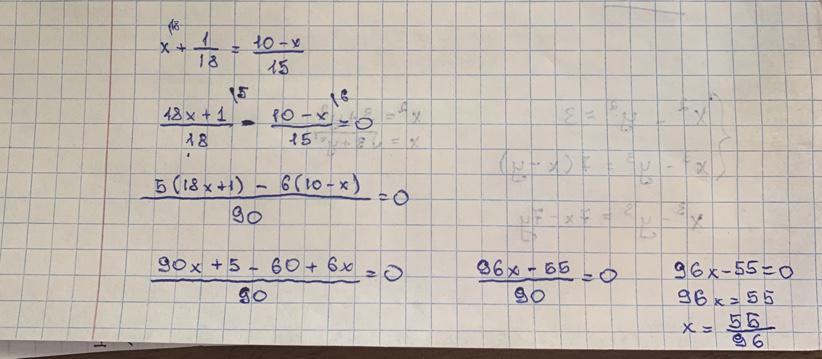 x\¹⁸ + 1/18 = (10-x)/15
(18x+1)/18\⁵ - (10-x)/15\⁶ = 0
(5(18x+1) - 6(10-x))/90 = 0
(90x + 5 - 60 + 6x)/90 = 0
(96x - 55)/90 = 0
96x - 55 = 0
96x = 55
x = 55/96